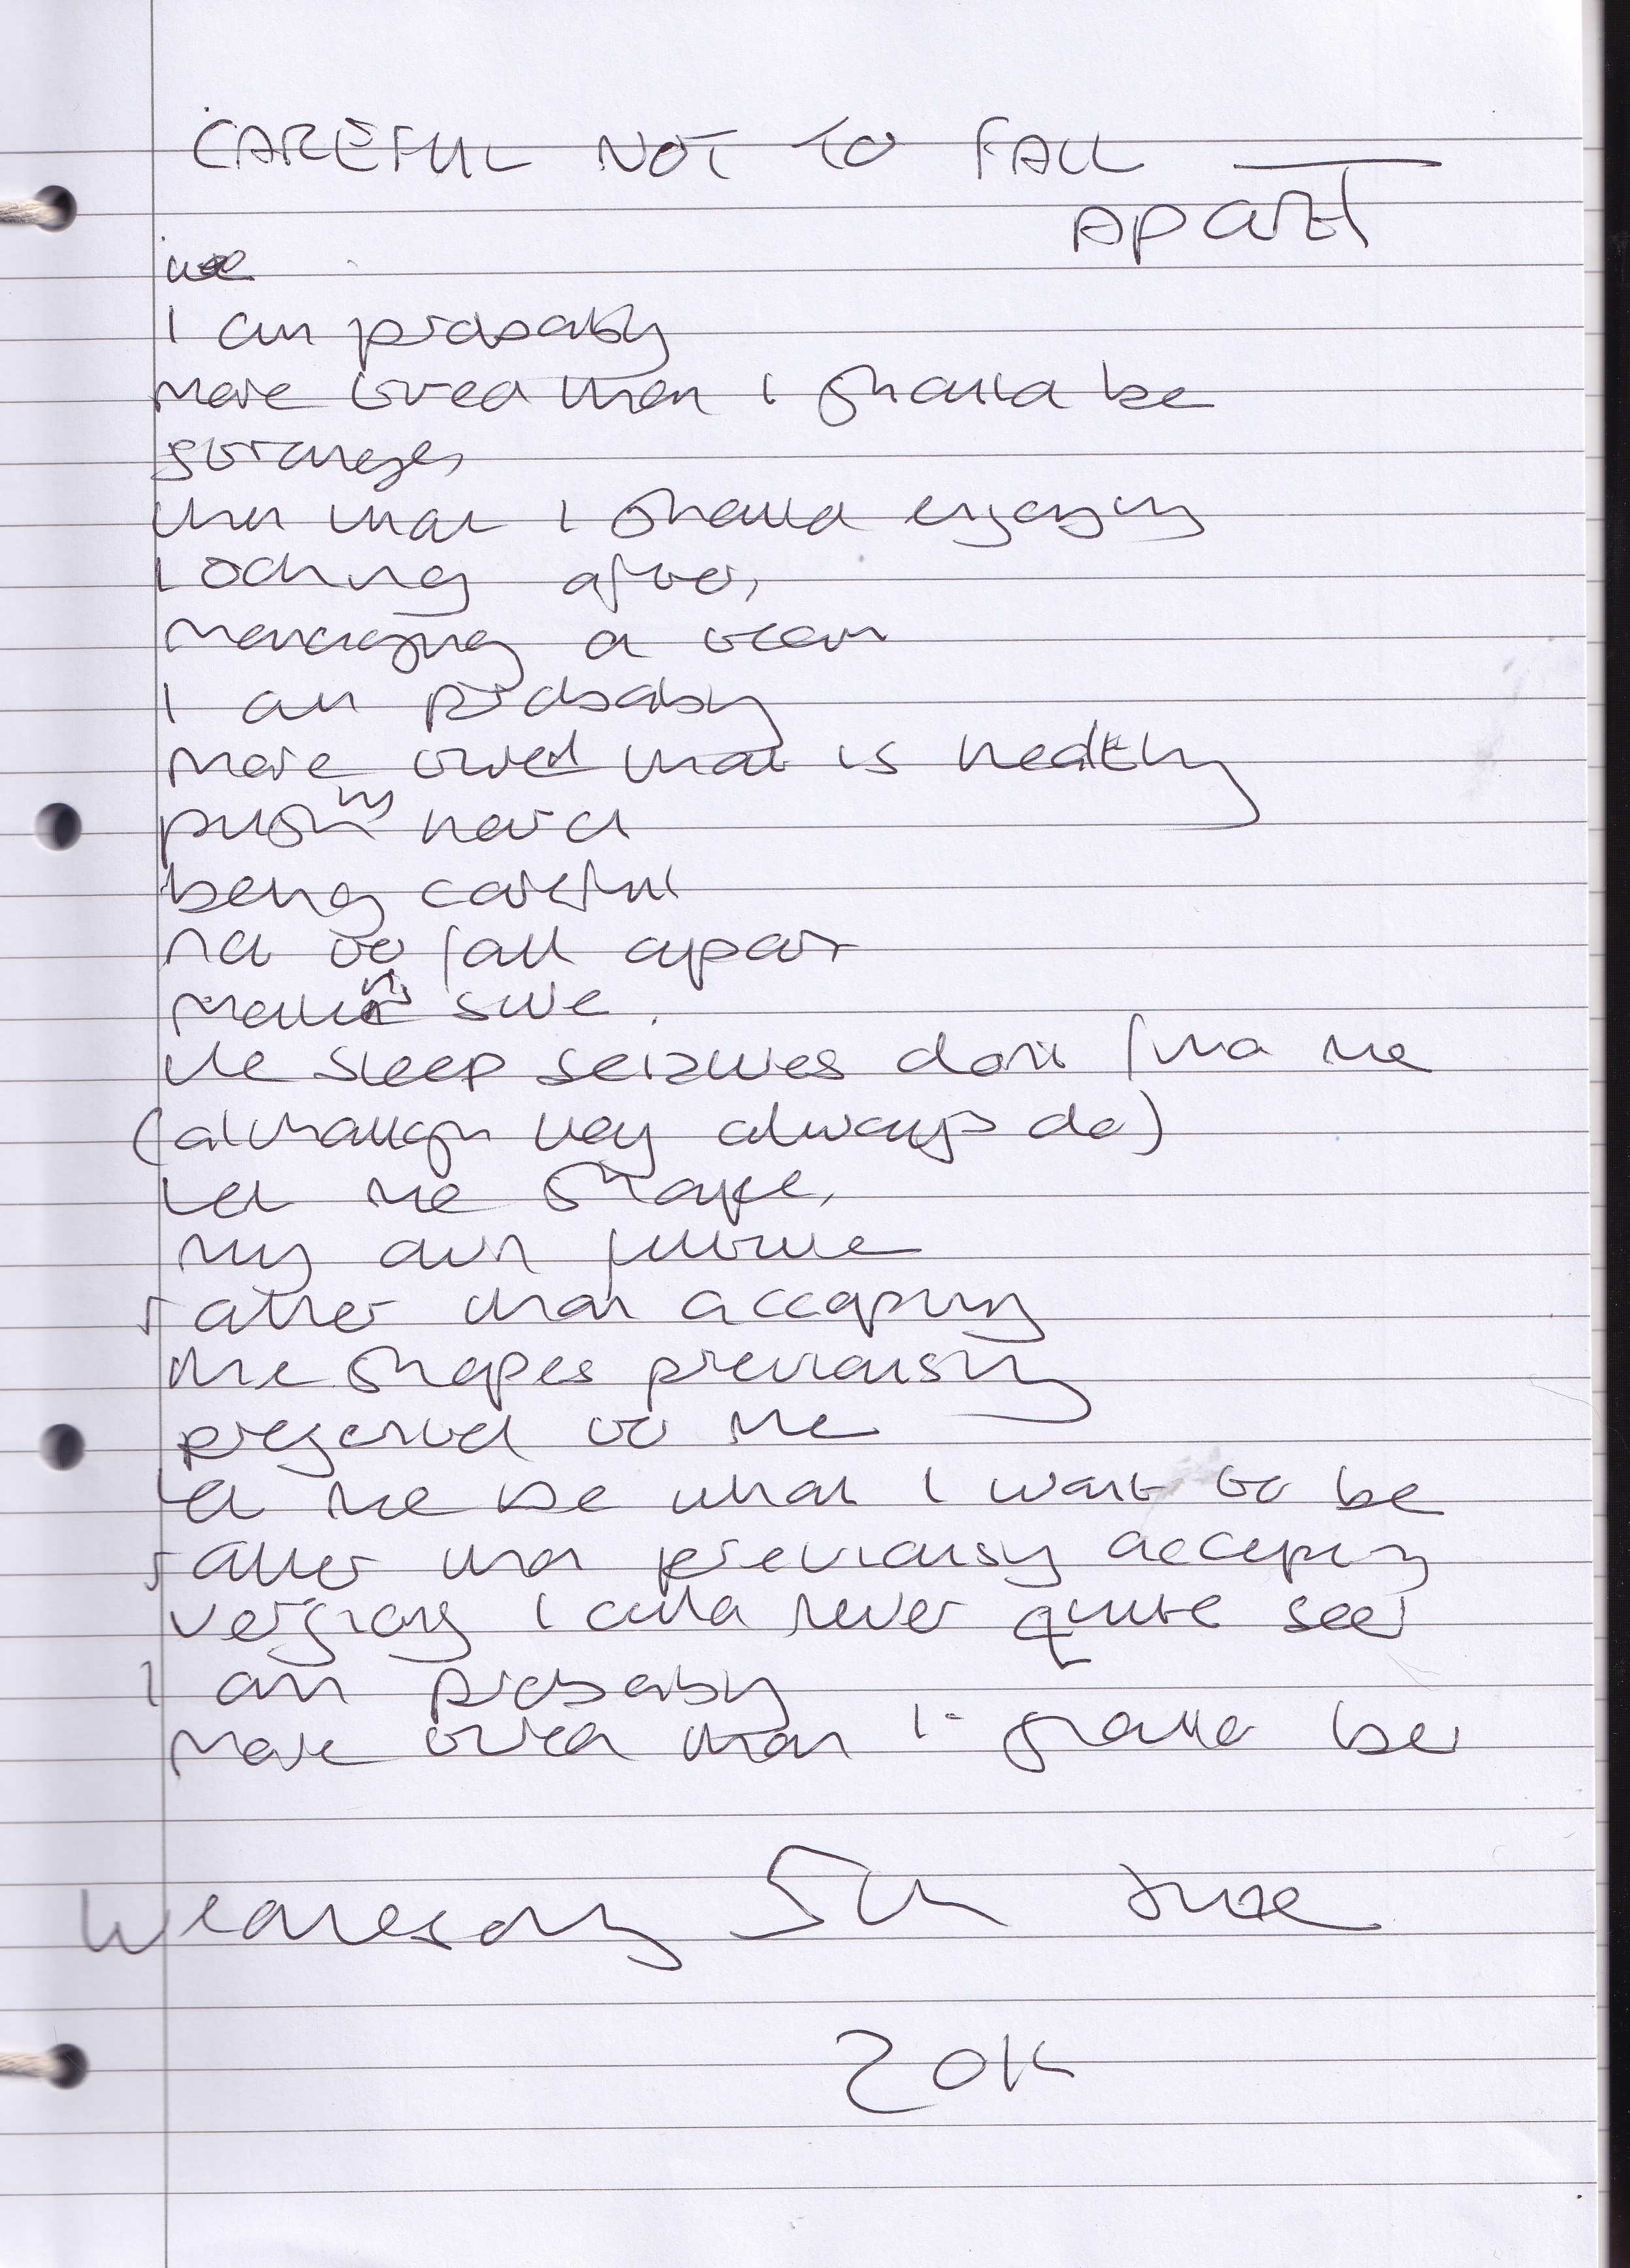 CAREFUL NOT TO FALL
APART
I am probably
more tired than I should be
stranger
than that I should enjoying
looking after,
managing a team
I am probably
more tired than is healthy
pushing hard
being careful
not to fall apart
making sure
the sleep seizures don't find me
(although they always do)
let me shape,
my own future
rather than accepting
the shapes previously
presented to me
let me be what I want to be
rather than previously accepting
versions I could never quite see
I am probably
more tired than I should be
Wednesday 5th June